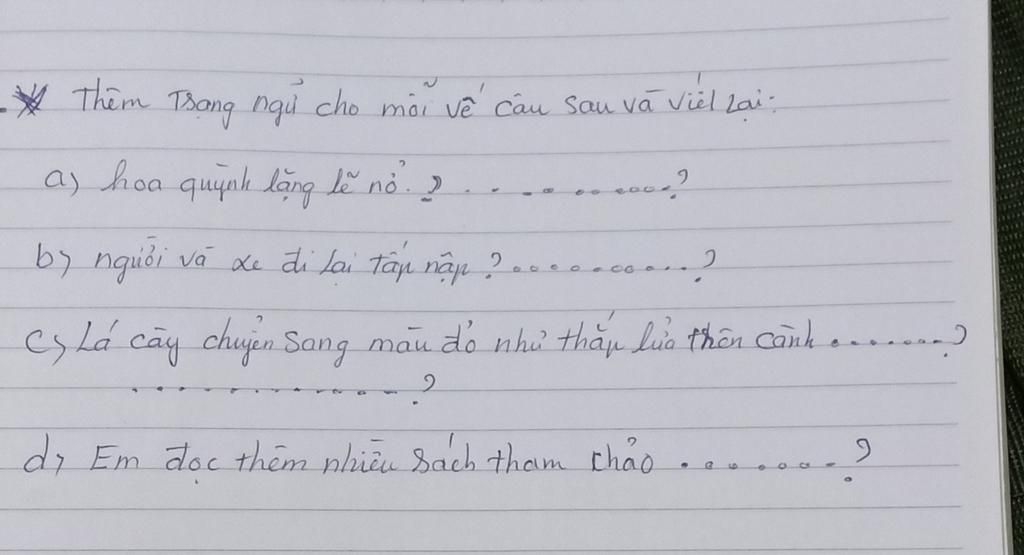 * Thêm Trạng ngữ cho mỗi vế câu sau và viết lại:
a) hoa quỳnh lặng lẽ nở. ? ..............?
b) người và xe đi lại tấp nập ?..............?
c) Lá cây chuyển sang màu đỏ như thắp lửa trên cành ..........?
................?
d) Em đọc thêm nhiều sách tham khảo ..........?